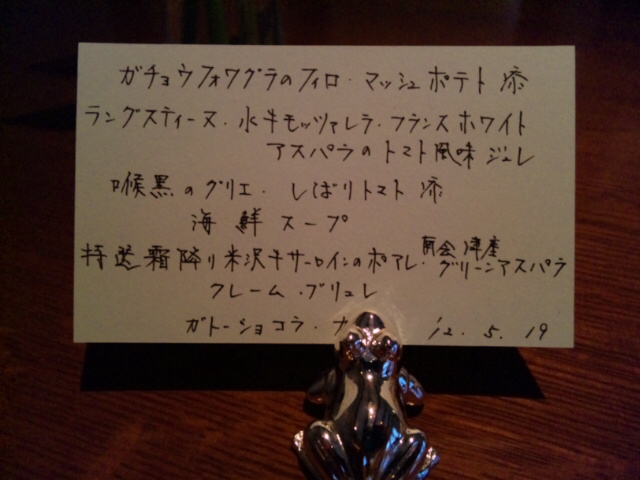 ガチョウフォワグラのフィロ・マッシュポテト添
ラングスティーヌ・水牛モッツァレラ・フランスホワイト
アスパラのトマト風味ジュレ
喉黒のグリエ・しぼりトマト添
海鮮スープ
特選霜降り米沢牛サーロインのポアレ・南会津産グリーンアスパラ
クレーム・ブリュレ
ガトーショコラ・ '12.5.19